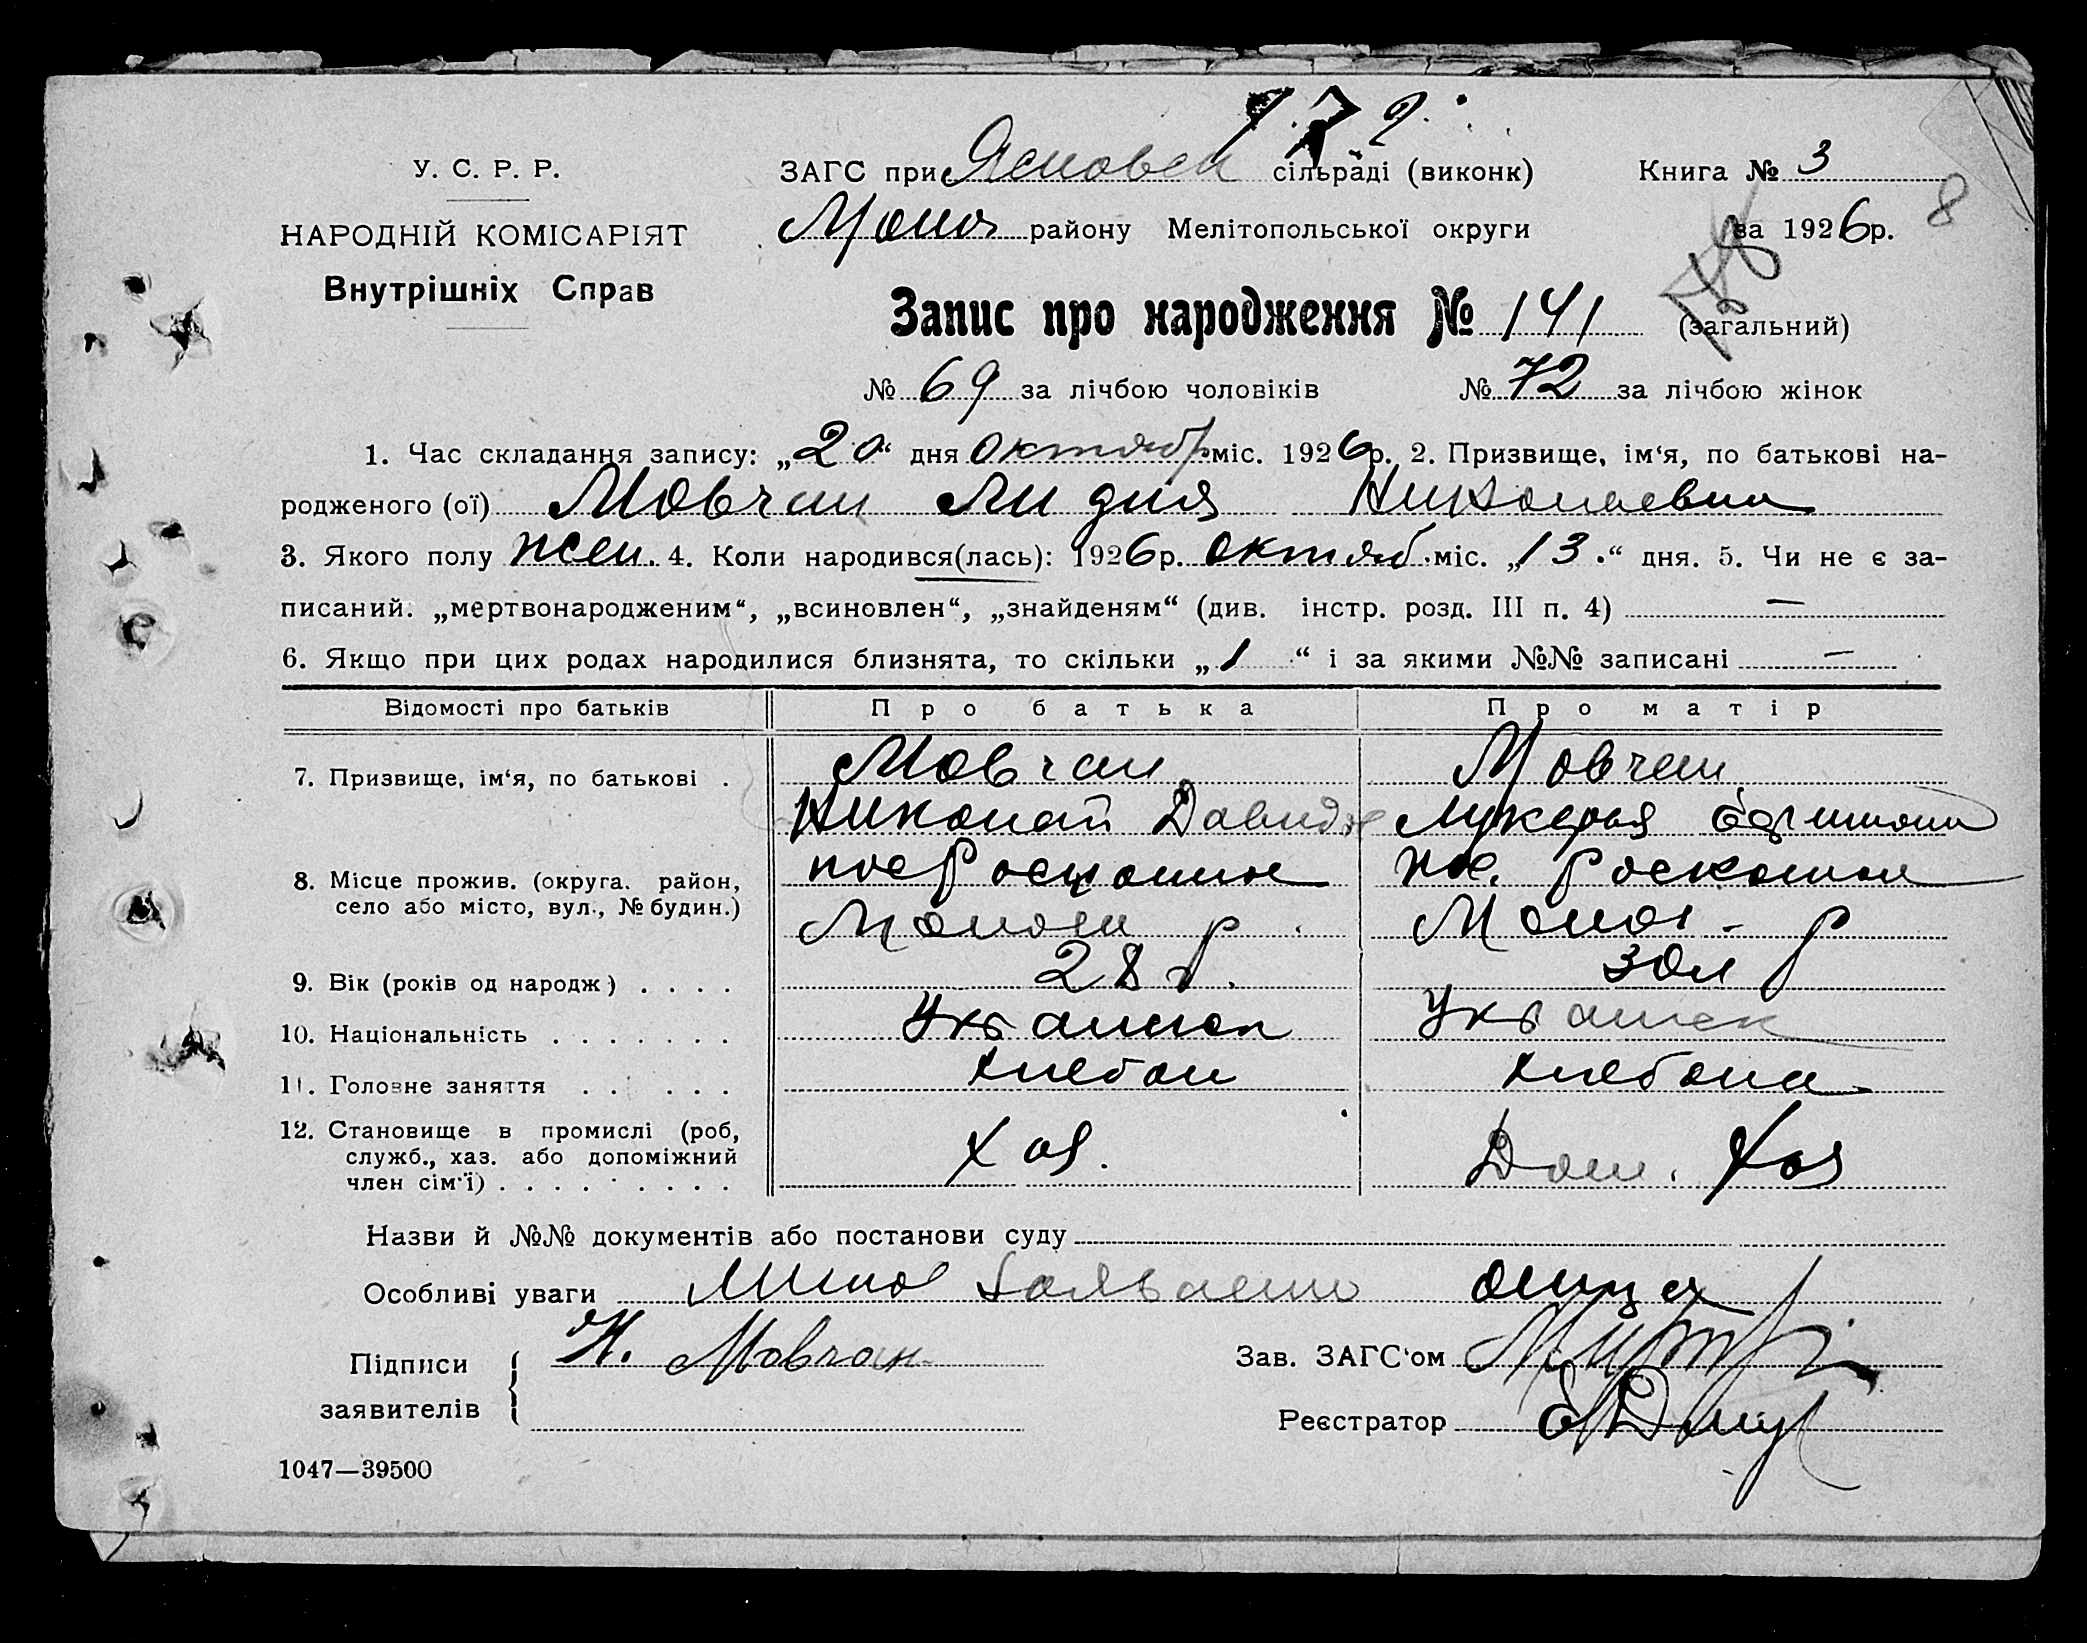 У. С. Р. Р.
НАРОДНІЙ КОМІСАРІЯТ
Внутрішніх Справ
ЗАГС при сільраді (виконк) Книга № 3
району Мелітопольської округи за 1926р. 8
Запис про народження № 141 (загальний)
№ 69 за лічбою чоловіків № 72 за лічбою жінок
1. Час складання запису: „20“ дня октябр міс. 1926р. 2. Призвище, ім‘я, по батькові на-
родженого (ої) Мовчан Лидия Николаевна
3. Якого полу жен. 4. Коли народився(лась): 1926р. октяб. міс. „13.“ дня. 5. Чи не є за-
писаний: „мертвонародженим“, „всиновлен“, „знайденям“ (див. інстр. розд. III п. 4) —
6. Якщо при цих родах народилися близнята, то скільки „1“ і за якими №№ записані —
Відомості про батьків Про батька Про матір
7. Призвище, ім‘я, по батькові . Мовчан Мовчан
Николай Давид Лукерья
8. Місце прожив. (округа, район, пос. пос.
село або місто, вул., № будин.) р. р
9. Вік (років од народж) . . . . 28 г. 30 л
10. Національність . . . . . . . Украинск Украинск
11. Головне заняття . . . . . . хлебоп хлебопа
12. Становище в промислі (роб,
служб., хаз. або допоміжний Хоз. Дом. Хоз
член сім'ї) . . . . . . . . .
Назви й №№ документів або постанови суду
Особливі уваги Лично отцех
Підписи Н. Мовчан Зав. ЗАГС‘ом
заявителів Реєстратор
1047—39500